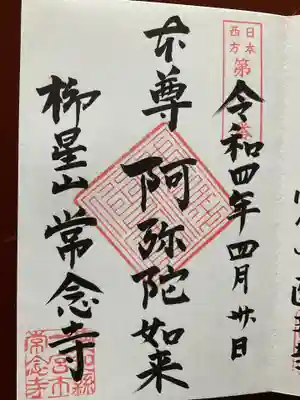 日本
西方
第
令和四年四月卅日
本尊
阿弥陀如来
柳星山常念寺
宮市
常念寺